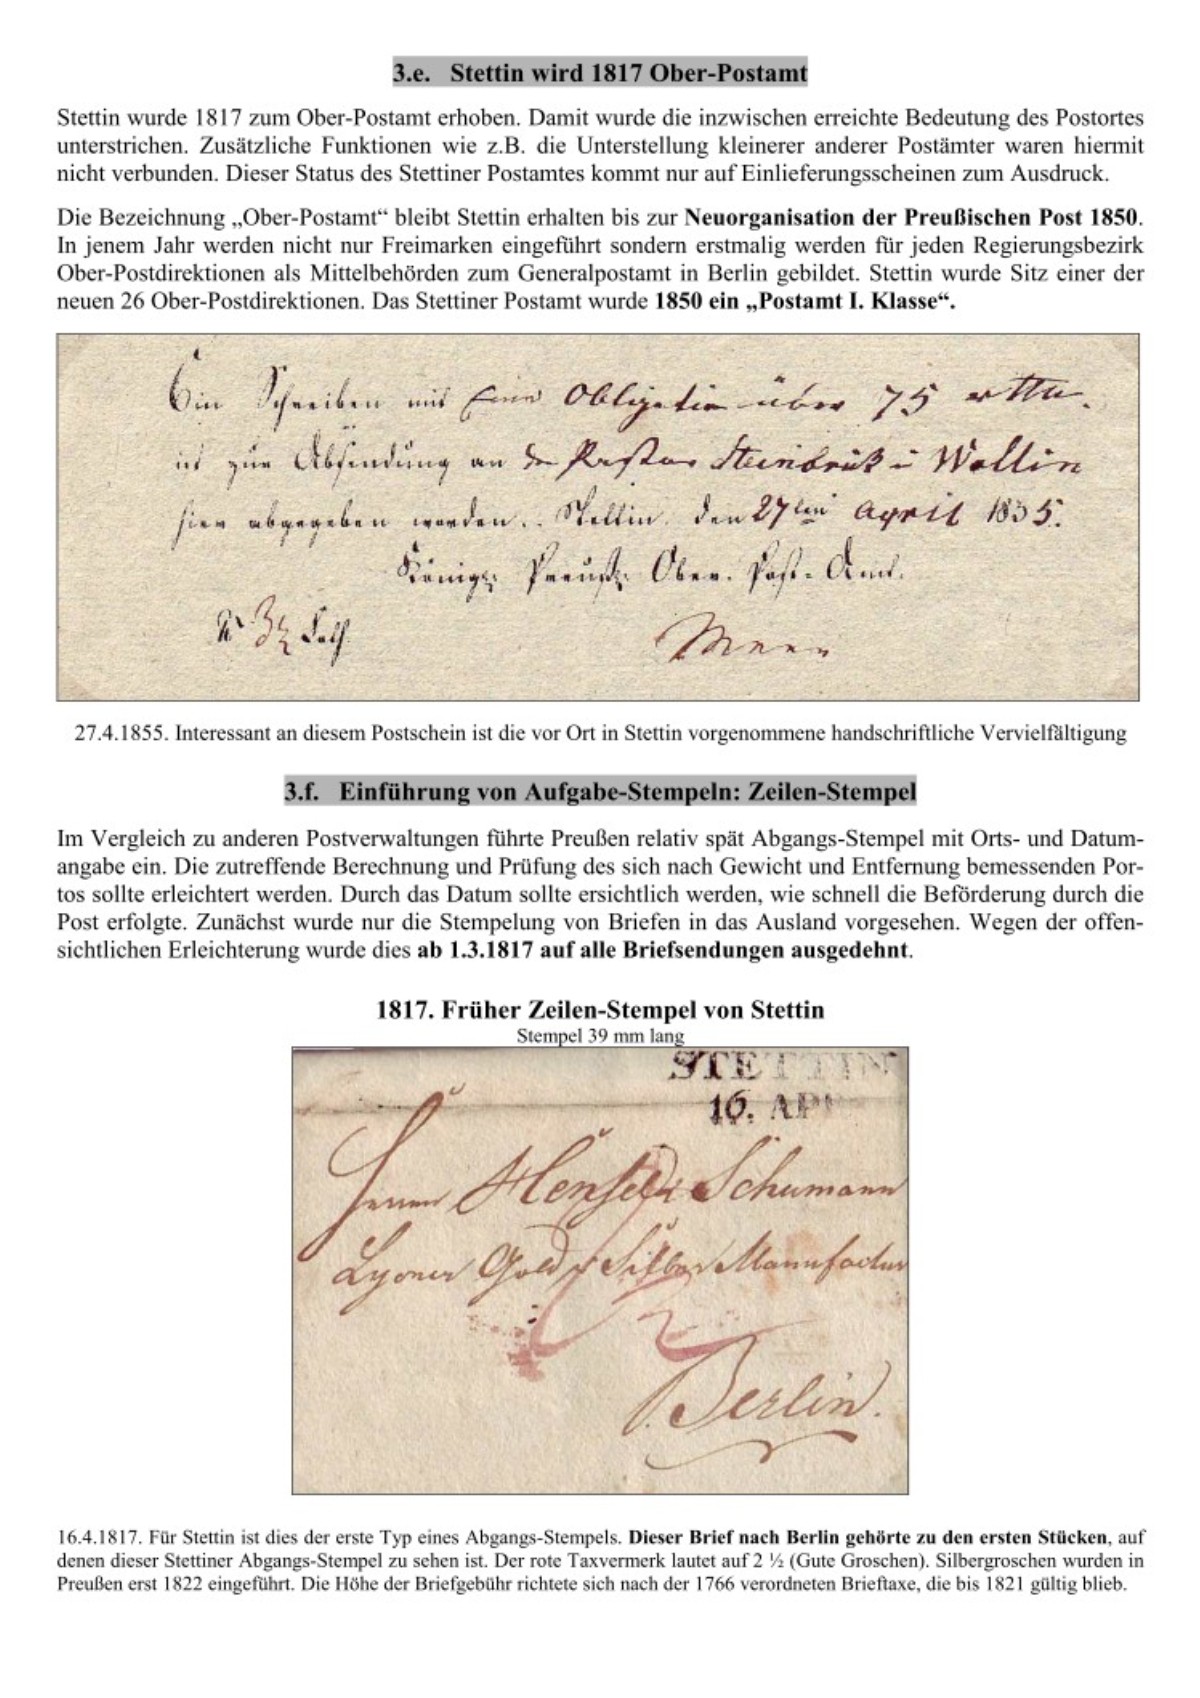 3.e. Stettin wird 1817 Ober-Postamt
Stettin wurde 1817 zum Ober-Postamt erhoben. Damit wurde die inzwischen erreichte Bedeutung des Postortes
unterstrichen. Zusätzliche Funktionen wie z.B. die Unterstellung kleinerer anderer Postämter waren hiermit
nicht verbunden. Dieser Status des Stettiner Postamtes kommt nur auf Einlieferungsscheinen zum Ausdruck.
Die Bezeichnung „Ober-Postamt“ bleibt Stettin erhalten bis zur Neuorganisation der Preußischen Post 1850.
In jenem Jahr werden nicht nur Freimarken eingeführt sondern erstmalig werden für jeden Regierungsbezirk
Ober-Postdirektionen als Mittelbehörden zum Generalpostamt in Berlin gebildet. Stettin wurde Sitz einer der
neuen 26 Ober-Postdirektionen. Das Stettiner Postamt wurde 1850 ein „Postamt I. Klasse“.
Ein Schreiben mit Eine Obligation über 75
ist zur Absendung an Pastor Steinbrük Wollin
hier abgegeben worden. Stettin den 27ten April 1835.
Königl: Preuß: Ober-Post-Amt.
Loth
27.4.1855. Interessant an diesem Postschein ist die vor Ort in Stettin vorgenommene handschriftliche Vervielfältigung
3.f. Einführung von Aufgabe-Stempeln: Zeilen-Stempel
Im Vergleich zu anderen Postverwaltungen führte Preußen relativ spät Abgangs-Stempel mit Orts- und Datum-
angabe ein. Die zutreffende Berechnung und Prüfung des sich nach Gewicht und Entfernung bemessenden Por-
tos sollte erleichtert werden. Durch das Datum sollte ersichtlich werden, wie schnell die Beförderung durch die
Post erfolgte. Zunächst wurde nur die Stempelung von Briefen in das Ausland vorgesehen. Wegen der offen-
sichtlichen Erleichterung wurde dies ab 1.3.1817 auf alle Briefsendungen ausgedehnt.
1817. Früher Zeilen-Stempel von Stettin
Stempel 39 mm lang
STETTIN
16. AP
Herrn Hensel & Schumann
Lyoner Gold & Silber Manufactur
Berlin.
16.4.1817. Für Stettin ist dies der erste Typ eines Abgangs-Stempels. Dieser Brief nach Berlin gehörte zu den ersten Stücken, auf
denen dieser Stettiner Abgangs-Stempel zu sehen ist. Der rote Taxvermerk lautet auf 2 ½ (Gute Groschen). Silbergroschen wurden in
Preußen erst 1822 eingeführt. Die Höhe der Briefgebühr richtete sich nach der 1766 verordneten Brieftaxe, die bis 1821 gültig blieb.